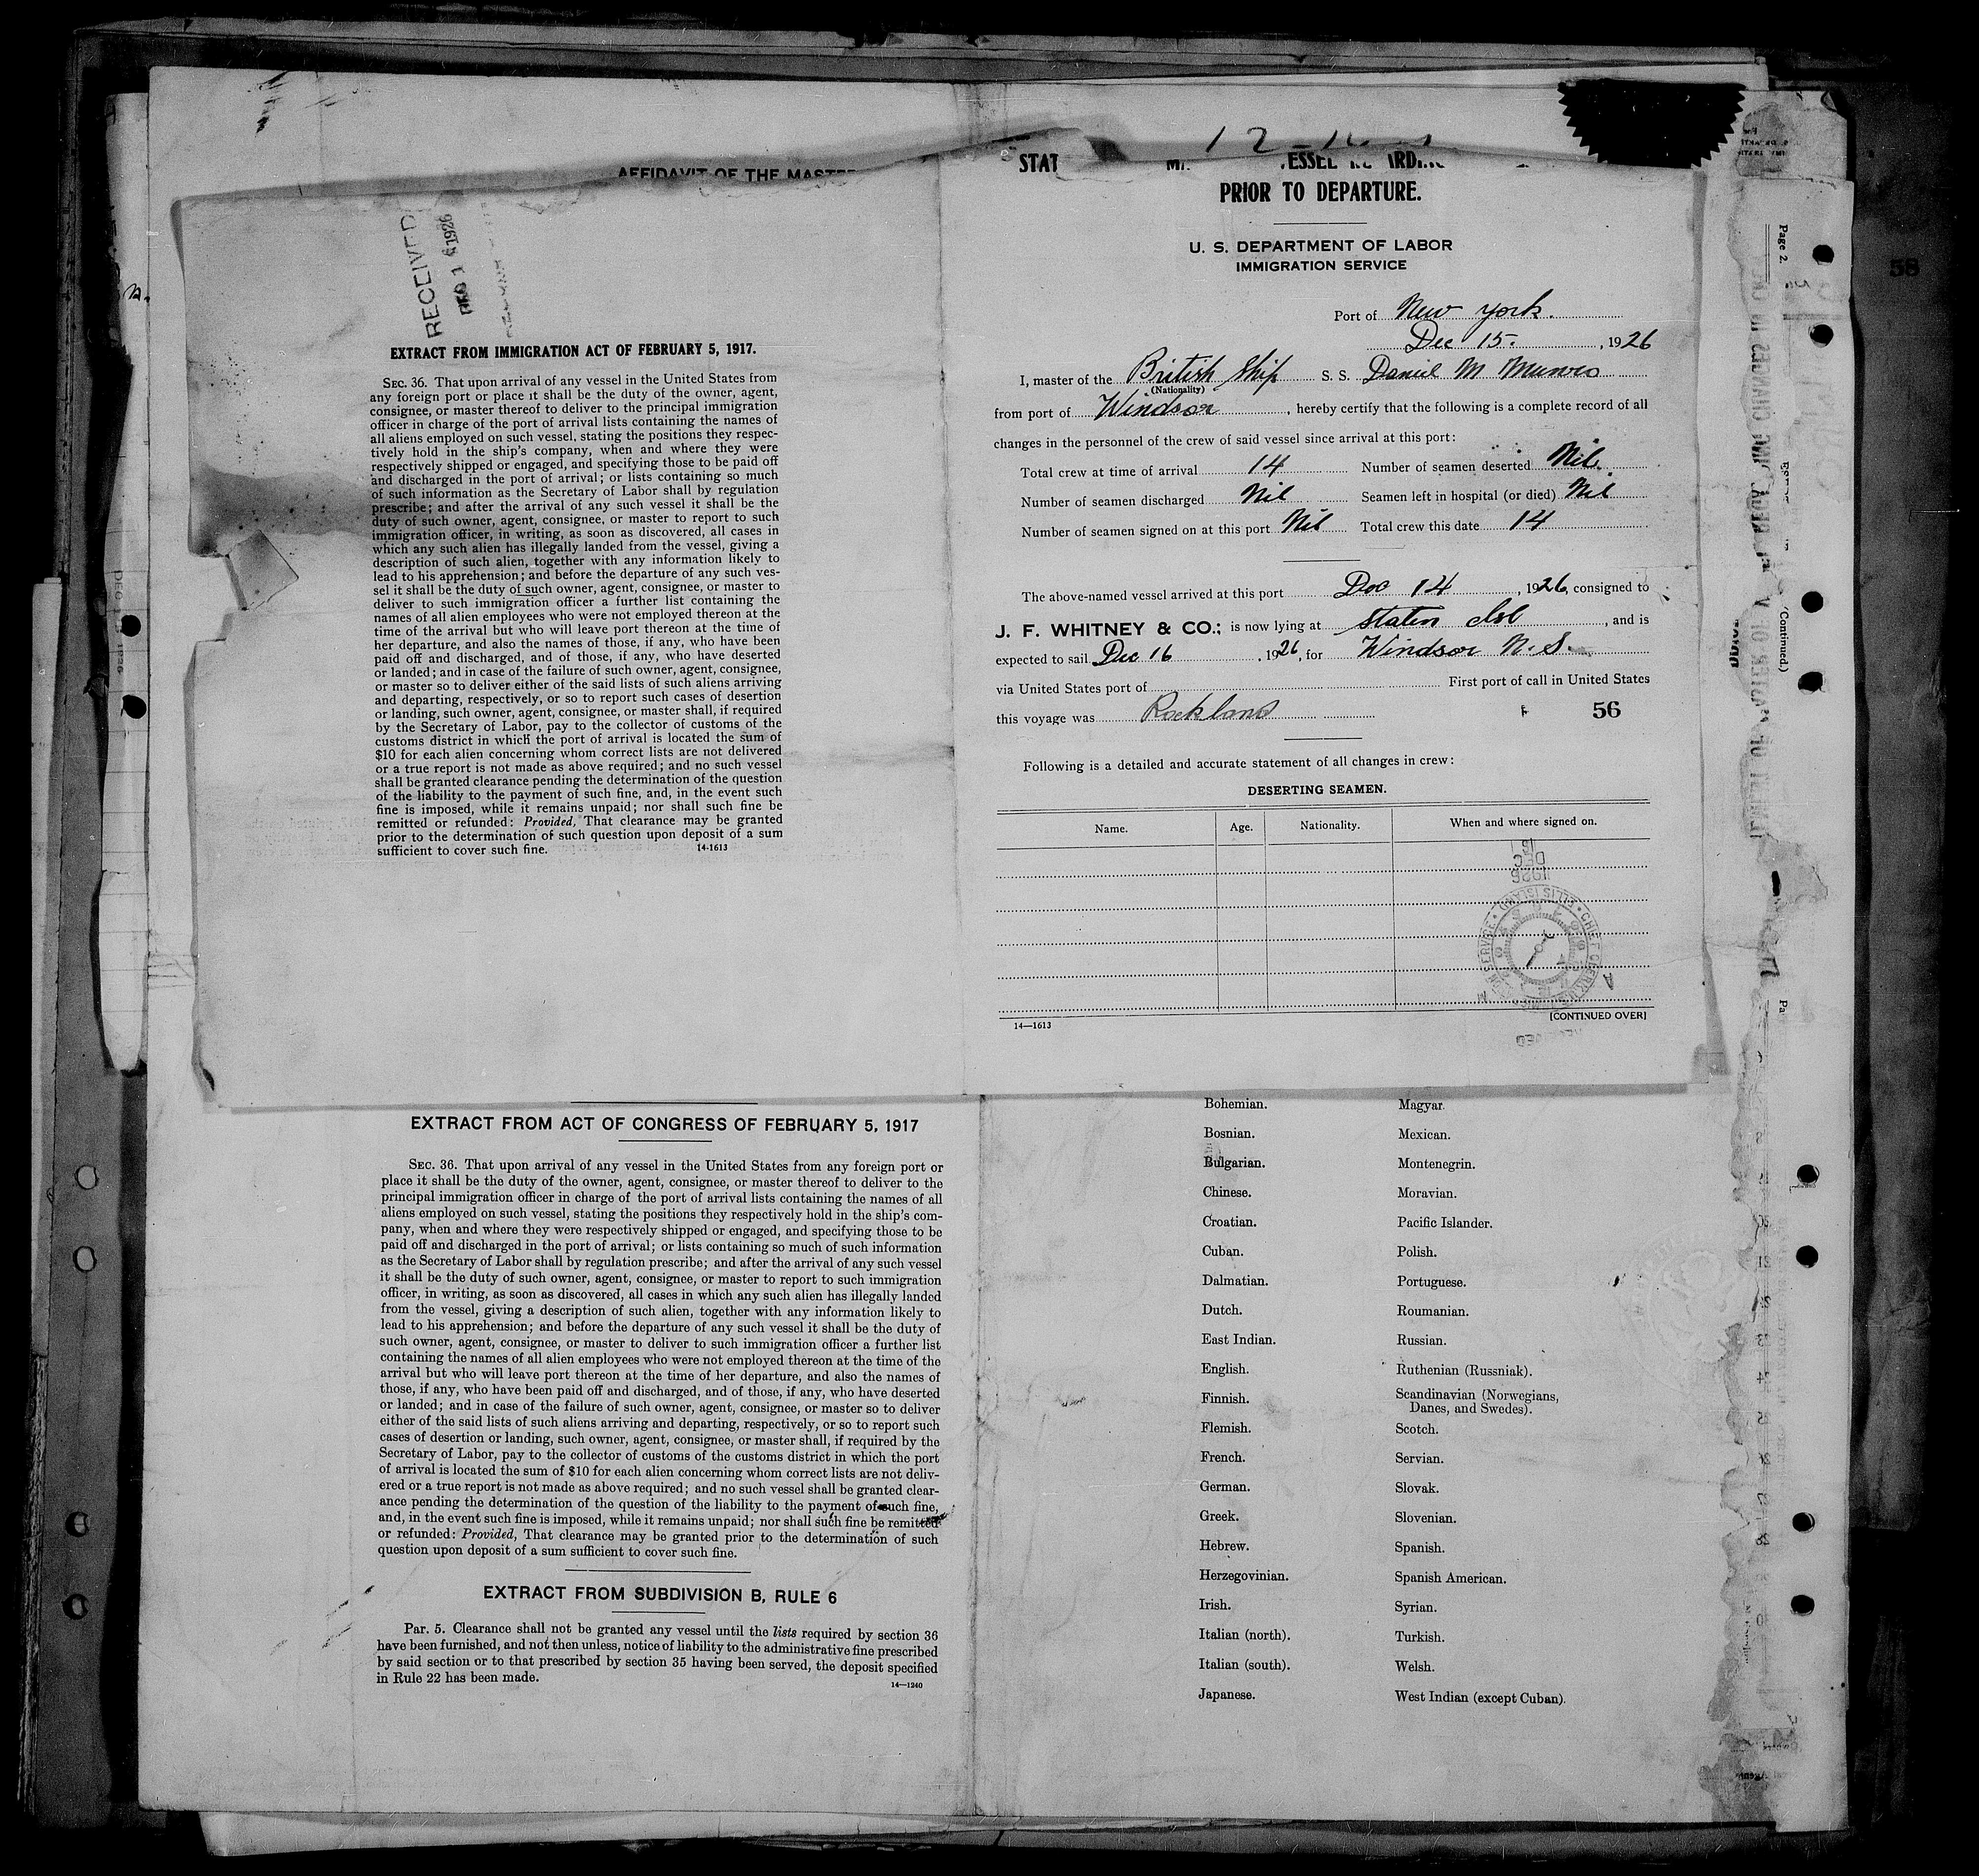 AFFIDAVIT OF THE MASTE
RECEIVED
1926
EXTRACT FROM IMMIGRATION ACT OF FEBRUARY 5, 1917.
SEC. 36. That upon arrival of any vessel in the United States from
any foreign port or place it shall be the duty of the owner, agent,
consignee, or master thereof to deliver to the principal immigration
officer in charge of the port of arrival lists containing the names of
all aliens employed on such vessel, stating the positions they respec-
tively hold in the ship's company, when and where they were
respectively shipped or engaged, and specifying those to be paid off
and discharged in the port of arrival; or lists containing so much
of such information as the Secretary of Labor shall by regulation
prescribe; and after the arrival of any such vessel it shall be the
duty of such owner, agent, consignee, or master to report to such
immigration officer, in writing, as soon as discovered, all cases in
which any such alien has illegally landed from the vessel, giving a
description of such alien, together with any information likely to
lead to his apprehension; and before the departure of any such ves-
sel it shall be the duty of such owner, agent, consignee, or master to
deliver to such immigration officer a further list containing the
names of all alien employees who were not employed thereon at the
time of the arrival but who will leave port thereon at the time of
her departure, and also the names of those, if any, who have been
paid off and discharged, and of those, if any, who have deserted
or landed; and in case of the failure of such owner, agent, consignee,
or master so to deliver either of the said lists of such aliens arriving
and departing, respectively, or so to report such cases of desertion
or landing, such owner, agent, consignee, or master shall, if required
by the Secretary of Labor, pay to the collector of customs of the
customs district in which the port of arrival is located the sum of
$10 for each alien concerning whom correct lists are not delivered
or a true report is not made as above required; and no such vessel
shall be granted clearance pending the determination of the question
of the liability to the payment of such fine, and, in the event such
fine is imposed, while it remains unpaid; nor shall such fine be
remitted or refunded: Provided, That clearance may be granted
prior to the determination of such question upon deposit of a sum
sufficient to cover such fine. 14-1613
STAT
PRIOR TO DEPARTURE.
U. S. DEPARTMENT OF LABOR
IMMIGRATION SERVICE
Port of New York.
Dec 15. , 1926
I, master of the British Ship S. S. Daniel M Munro
(Nationality)
from port of Windsor , hereby certify that the following is a complete record of all
changes in the personnel of the crew of said vessel since arrival at this port:
Total crew at time of arrival 14 Number of seamen deserted Nil.
Number of seamen discharged Nil Seamen left in hospital (or died) Nil
Number of seamen signed on at this port Nil Total crew this date 14
The above-named vessel arrived at this port Dec 14 , 1926, consigned to
J. F. WHITNEY & CO.; is now lying at Staten Isl , and is
expected to sail Dec 16 , 1926, for Windsor N. S.
via United States port of First port of call in United States
this voyage was Rockland 56
Following is a detailed and accurate statement of all changes in crew:
DESERTING SEAMEN.
Name. Age. Nationality. When and where signed on.
1926
DEC
ELLIS ISLAND
CHIEF CLERK
14—1613 [CONTINUED OVER]
Page 2.
(Continued.)
58
EXTRACT FROM ACT OF CONGRESS OF FEBRUARY 5, 1917
SEC. 36. That upon arrival of any vessel in the United States from any foreign port or
place it shall be the duty of the owner, agent, consignee, or master thereof to deliver to the
principal immigration officer in charge of the port of arrival lists containing the names of all
aliens employed on such vessel, stating the positions they respectively hold in the ship's com-
pany, when and where they were respectively shipped or engaged, and specifying those to be
paid off and discharged in the port of arrival; or lists containing so much of such information
as the Secretary of Labor shall by regulation prescribe; and after the arrival of any such vessel
it shall be the duty of such owner, agent, consignee, or master to report to such immigration
officer, in writing, as soon as discovered, all cases in which any such alien has illegally landed
from the vessel, giving a description of such alien, together with any information likely to
lead to his apprehension; and before the departure of any such vessel it shall be the duty of
such owner, agent, consignee, or master to deliver to such immigration officer a further list
containing the names of all alien employees who were not employed thereon at the time of the
arrival but who will leave port thereon at the time of her departure, and also the names of
those, if any, who have been paid off and discharged, and of those, if any, who have deserted
or landed; and in case of the failure of such owner, agent, consignee, or master so to deliver
either of the said lists of such aliens arriving and departing, respectively, or so to report such
cases of desertion or landing, such owner, agent, consignee, or master shall, if required by the
Secretary of Labor, pay to the collector of customs of the customs district in which the port
of arrival is located the sum of $10 for each alien concerning whom correct lists are not deliv-
ered or a true report is not made as above required; and no such vessel shall be granted clear-
ance pending the determination of the question of the liability to the payment of such fine,
and, in the event such fine is imposed, while it remains unpaid; nor shall such fine be remitted
or refunded: Provided, That clearance may be granted prior to the determination of such
question upon deposit of a sum sufficient to cover such fine.
EXTRACT FROM SUBDIVISION B, RULE 6
Par. 5. Clearance shall not be granted any vessel until the lists required by section 36
have been furnished, and not then unless, notice of liability to the administrative fine prescribed
by said section or to that prescribed by section 35 having been served, the deposit specified
in Rule 22 has been made.
14—1240
Bohemian. Magyar.
Bosnian. Mexican.
Bulgarian. Montenegrin.
Chinese. Moravian.
Croatian. Pacific Islander.
Cuban. Polish.
Dalmatian. Portuguese.
Dutch. Roumanian.
East Indian. Russian.
English. Ruthenian (Russniak).
Finnish. Scandinavian (Norwegians,
Danes, and Swedes).
Flemish. Scotch.
French. Servian.
German. Slovak.
Greek. Slovenian.
Hebrew. Spanish.
Herzegovinian. Spanish American.
Irish. Syrian.
Italian (north). Turkish.
Italian (south). Welsh.
Japanese. West Indian (except Cuban).